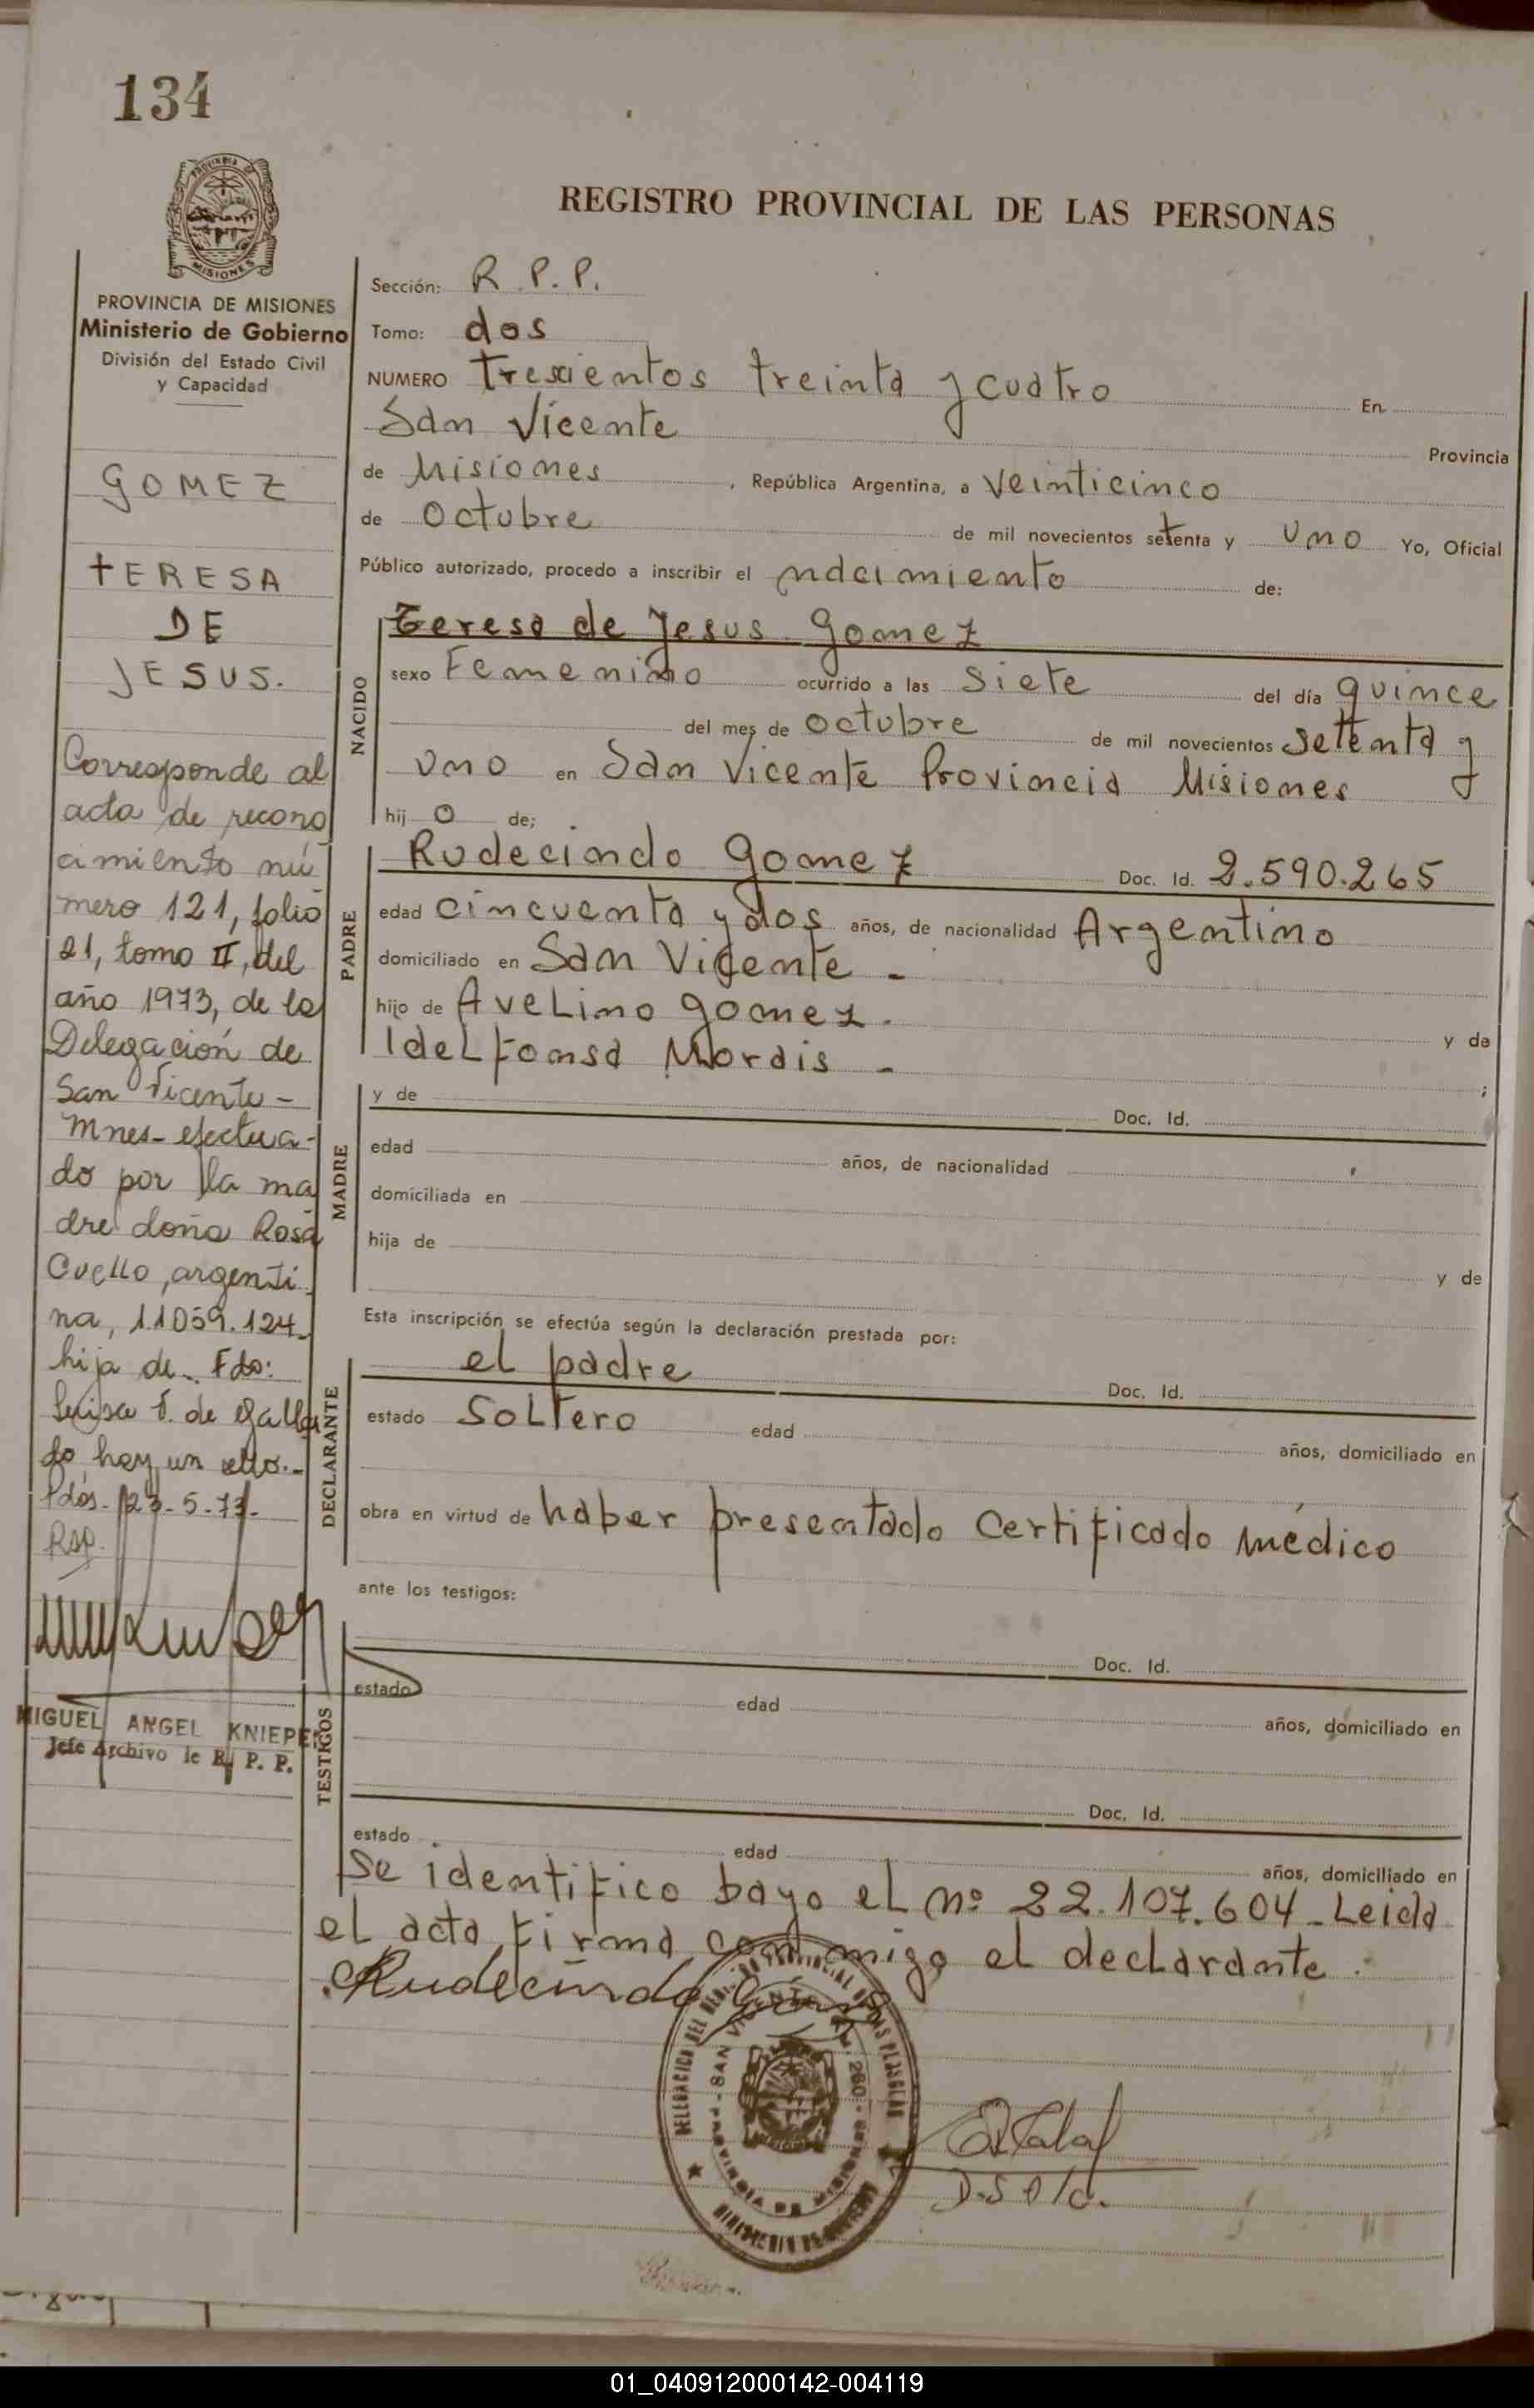 134
PROVINCIA
MISIONES
PROVINCIA DE MISIONES
Ministerio de Gobierno
División del Estado Civil
y Capacidad
GOMEZ
TERESA
DE
JESUS.
Corresponde al
acta de recono
cimiento nú
mero 121, folio
21, tomo II, del
año 1973, de la
Delegación de
San Vicente -
Mnes- efectua-
do por la ma
dre doña Rosa
Cuello, argenti
na, 11059.124-
hija de. Fdo:
Luisa de
do hay un sello.-
Pdas. 23-5-73-
MIGUEL ANGEL KNIEPE
Jefe Archivo de R. P. P.
REGISTRO PROVINCIAL DE LAS PERSONAS
Sección: R.P.P.
Tomo: dos
NUMERO Trescientos treinta y cuatro En
San Vicente Provincia
de Misiones , República Argentina, a veinticinco
de Octubre de mil novecientos setenta y uno Yo, Oficial
Público autorizado, procedo a inscribir el nacimiento de:
NACIDO
Teresa de Jesus Gomez
sexo Femenino ocurrido a las siete del día quince
del mes de octubre de mil novecientos setenta y
uno en San Vicente Provincia Misiones
hij o de;
PADRE
Rudecindo Gomez Doc. Id. 2.590.265
edad cincuenta y dos años, de nacionalidad Argentino
domiciliado en San Vicente -
hijo de Avelino Gomez. y de
Idelfonsa Morais - ;
MADRE
y de Doc. Id.
edad años, de nacionalidad
domiciliada en
hija de
y de
Esta inscripción se efectúa según la declaración prestada por:
DECLARANTE
el padre Doc. Id.
estado Soltero edad años, domiciliado en
obra en virtud de haber presentado certificado médico
ante los testigos:
TESTIGOS
Doc. Id.
estado edad años, domiciliado en
Doc. Id.
estado edad años, domiciliado en
Se identifico bayo el nº 22.107.604 - Leida
el acta firma conmigo el declarante.
Rudecindo Gomez
DELEGACION DEL REG. PROVINCIAL DE LAS PERSONAS
SAN VICENTE
PROVINCIA DE MISIONES
MINISTERIO DE GOBIERNO
01_040912000142-004119